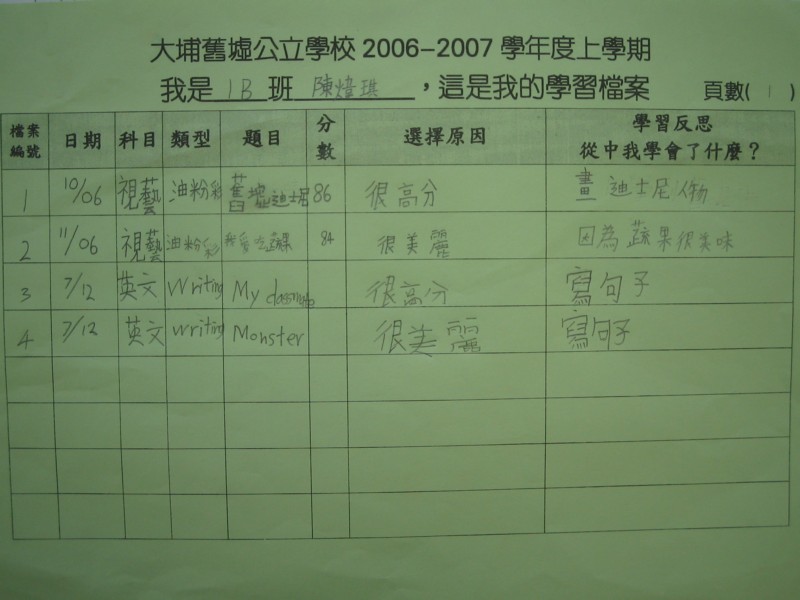 大埔舊墟公立學校 2006-2007 學年度上學期
我是 1B 班 陳煒琪 ，這是我的學習檔案 頁數( 1 )
檔案編號 日期 科目 類型 題目 分數 選擇原因 學習反思 從中我學會了什麼？
1 10/06 視藝 油粉彩 舊墟迪士尼 86 很高分 畫迪士尼人物
2 11/06 視藝 油粉彩 我愛吃蔬果 84 很美麗 因為蔬果很美味
3 7/12 英文 Writing My classmate 很高分 寫句子
4 7/12 英文 writing Monster 很美麗 寫句子